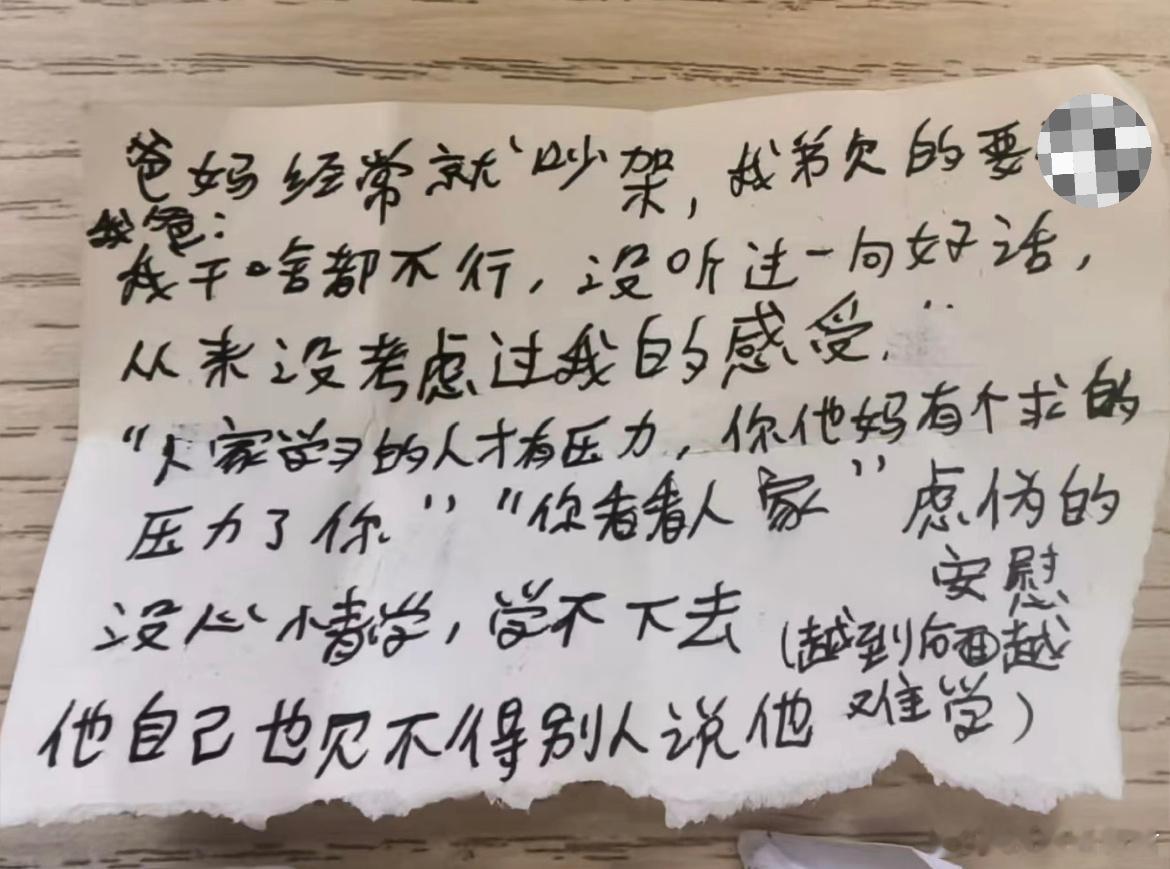 爸妈经常就吵架，我弟欠的要
我爸：
我干啥都不行，没听过一句好话，
从来没考虑过我的感受."
"人家学习的人才有压力，你他妈有个求的
压力了你""你看看人家"虑伪的
安慰
没心情学，学不下去
（越到后面越
难学）
他自己也见不得别人说他